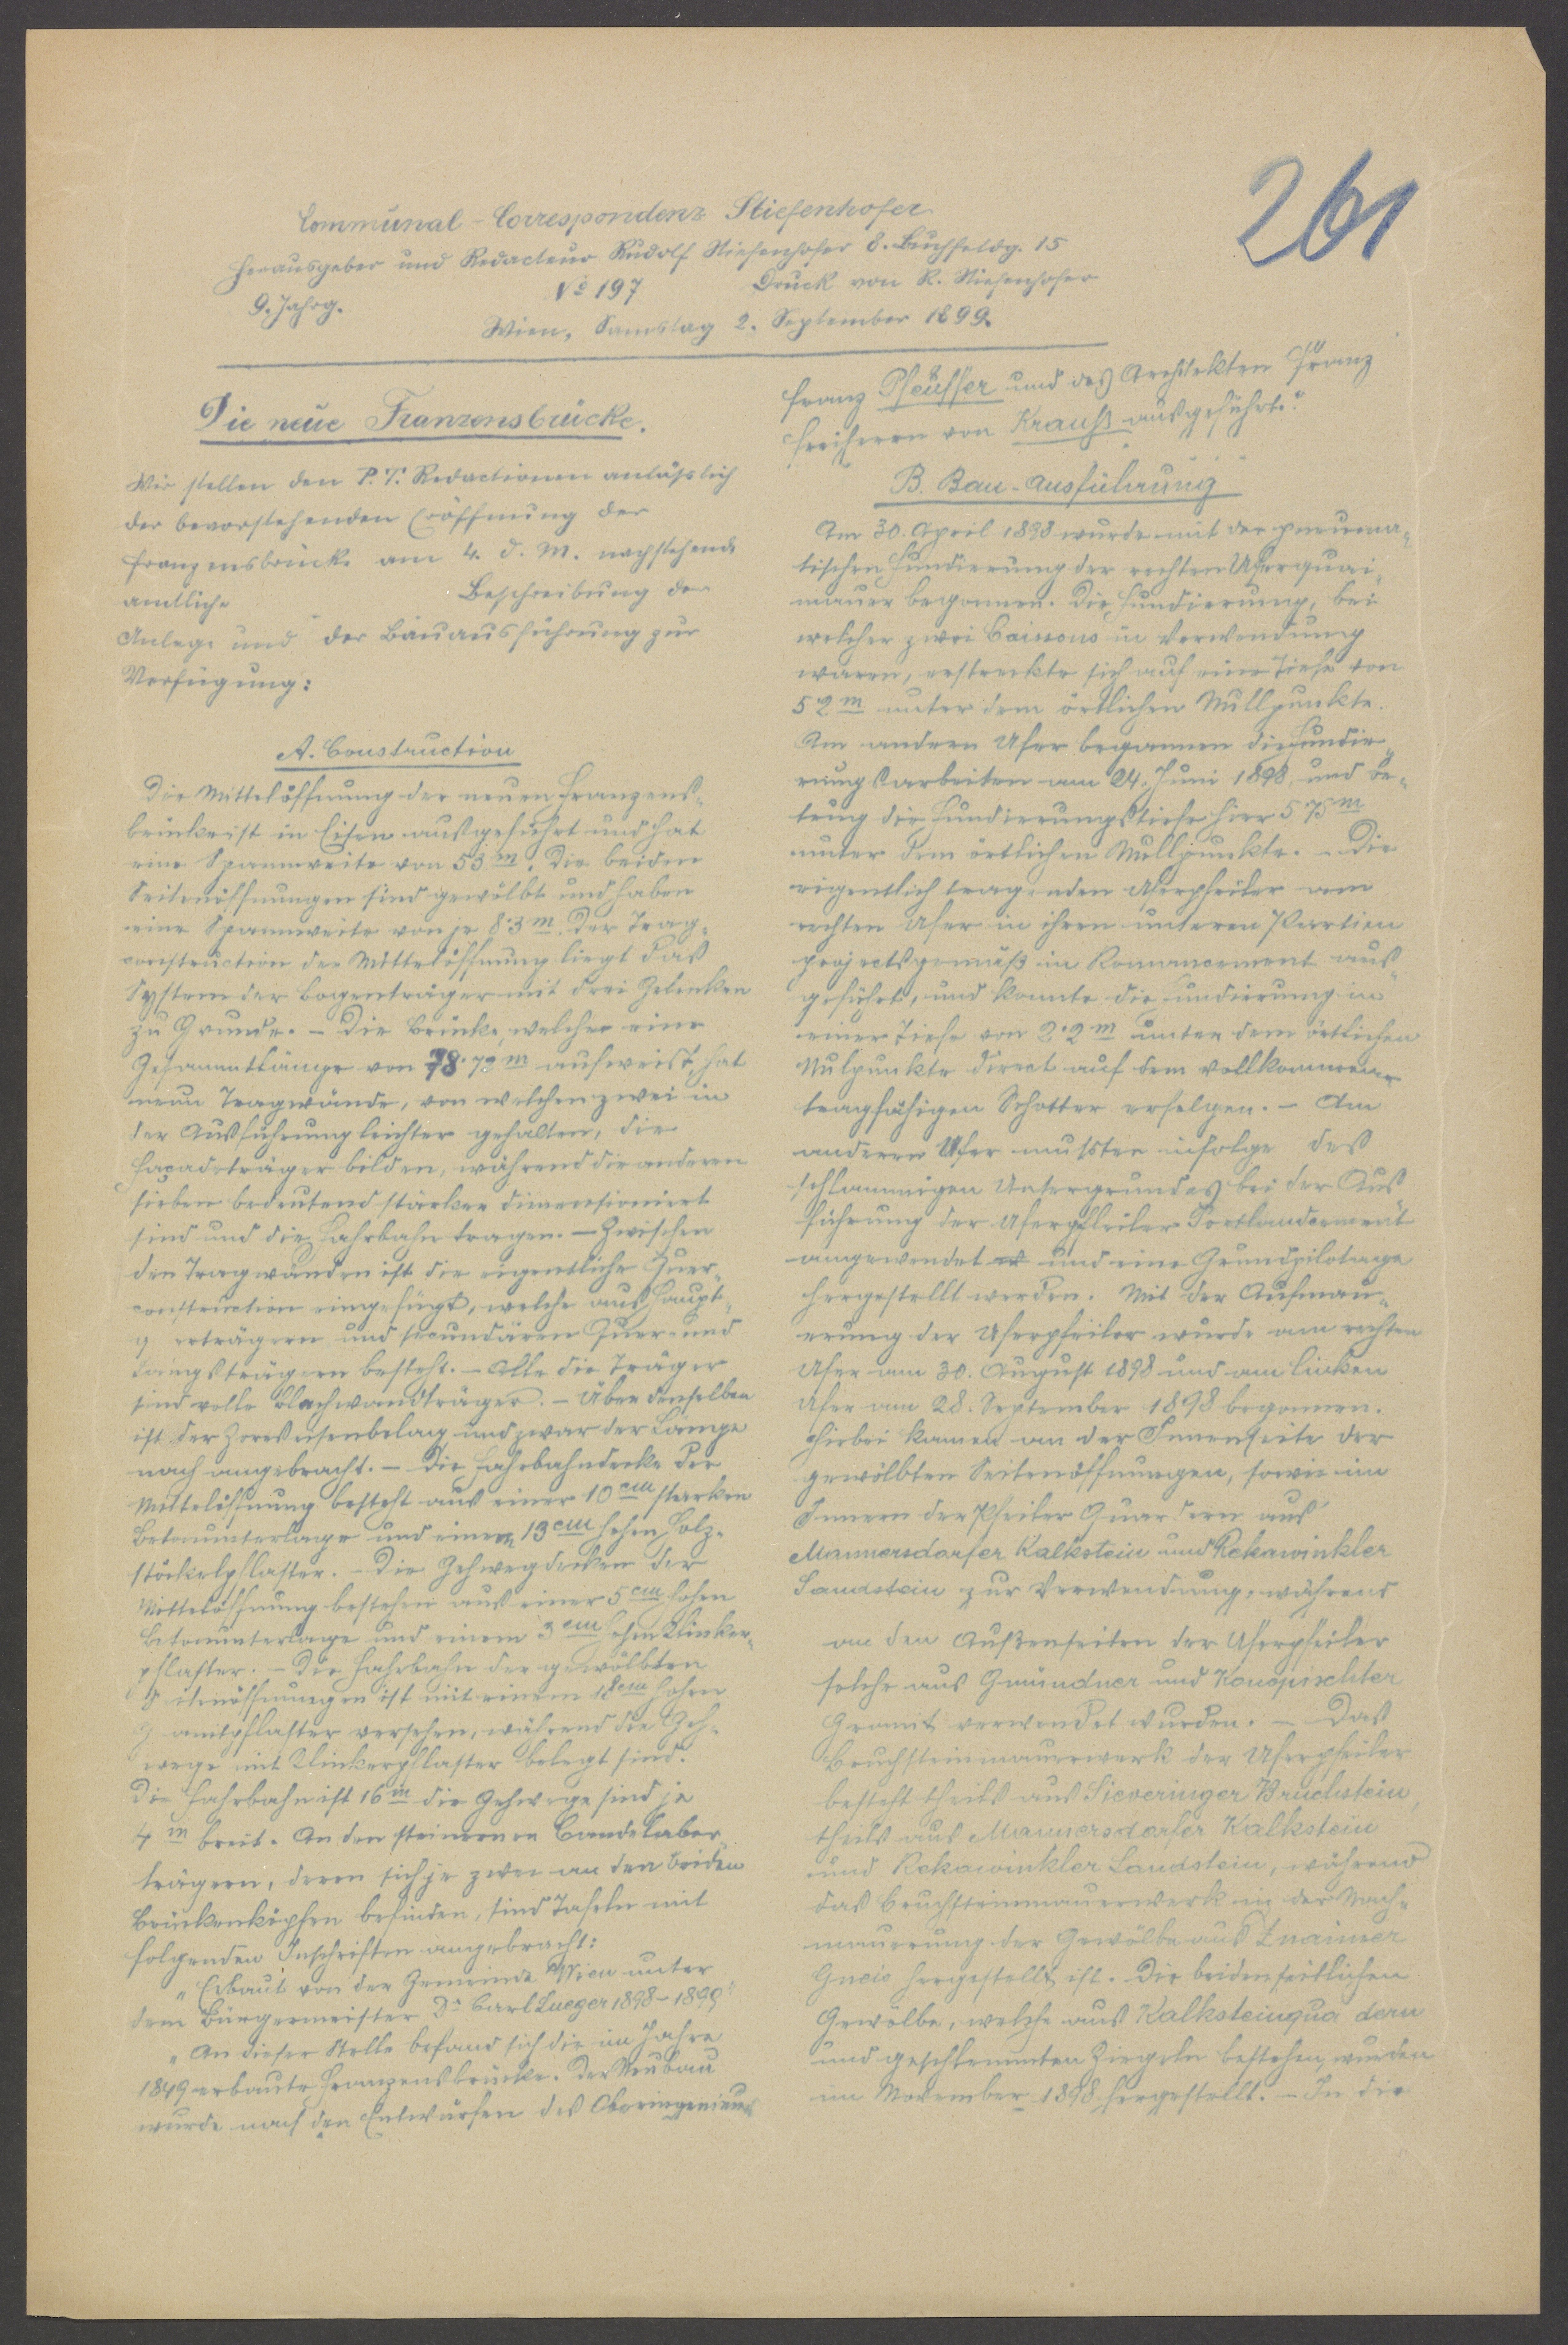 261
Communal-Correspondenz Stiefenhofer
Herausgeber und Redacteur Rudolf Stiefenhofer 8. Buchfeldg. 15
9. Jahrg. No 197 Druck von R. Stiefenhofer
Wien, Samstag 2. September 1899.
Die neue Franzensbrücke.
Wir stellen den P. T. Redactionen anlässlich
der bevorstehenden Eröffnung der
Franzensbrücke am 4. d. M. nachstehende
amtliche Beschreibung der
Anlage und der Bauausführung zur
Verfügung:
A. Construction
Die Mittelöffnung der neuen Franzens-
brücke ist in Eisen ausgeführt und hat
eine Spannweite von 53 m. Die beiden
Seitenöffnungen sind gewölbt und haben
eine Spannweite von je 8·3 m. Der Trag-
construction der Mittelöffnung liegt das
System der Bogenträger mit drei Gelenken
zu Grunde. – Die Brücke, welche eine
Gesammtlänge von 78·72 m aufweist, hat
neun Tragwände, von welchen zwei in
der Ausführung leichter gehalten, die
Façadeträger bilden, während die anderen
sieben bedeutend stärker dimensioniert
sind und die Fahrbahn tragen. – Zwischen
den Tragwänden ist die eigentliche Quer-
construction eingefügt, welche aus Haupt-
q erträgern und secundären Quer- und
Längsträgern besteht. – Alle die Träger
sind volle Blechwandträger. – Über denselben
ist der Zoreseisenbelag und zwar der Länge
nach angebracht. – Die Fahrbahndecke der
Mittelöffnung besteht aus einer 10 cm starken
Betonunterlage und einem 13 cm hohen Holz-
stöckelpflaster. – Die Gehwegdecken der
Mittelöffnung bestehen aus einer 5 cm hohen
Betonunterlage und einem 3 cm hohen Klinker-
pflaster. – Die Fahrbahn der gewölbten
S itenöffnungen ist mit einem 18 cm hohen
G anitpflaster versehen, während die Geh-
wege mit Klinkerpflaster belegt sind.
Die Fahrbahn ist 16 m die Gehwege sind je
4 m breit. An den steinernen Candelaber
trägern, deren sich je zwei an den beiden
Brückenköpfen befinden, sind Tafeln mit
folgenden Inschriften angebracht:
"Erbaut von der Gemeinde Wien unter
dem Bürgermeister Dr Carl Lueger 1898–1899"
"An dieser Stelle befand sich die im Jahre
1849 erbaute Franzensbrücke. Der Neubau
wurde nach den Entwürfen des Oberingenieurs
Franz Pfeuffer und des Architekten Franz
Freiherrn von Krauß ausgeführt."
B. Bau-Ausführung
Am 30. April 1898 wurde mit der pneuma-
tischen Fundierung der rechten Uferquai-
mauer begonnen. Die Fundierung, bei
welcher zwei Caissons in Verwendung
waren, erstreckte sich auf eine Tiefe von
5·2 m unter dem örtlichen Nullpunkte.
Am andern Ufer begannen die Fundie-
rungsarbeiten am 24. Juni 1898, und be-
trug die Fundierungstiefe hier 5·75 m
unter dem örtlichen Nullpunkte. – Die
eigentlich tragenden Uferpfeiler am
rechten Ufer in ihren unteren Partien
projectsgemäß in Romancement aus-
geführt, und konnte die Fundierung in
einer Tiefe von 2·2 m unter dem örtlichen
Nulpunkte direct auf dem vollkommen
tragfähigen Schotter erfolgen. – Am
anderen Ufer mussten infolge des
schlammigen Untergrundes bei der Aus-
führung der Uferpfeiler Portlandcement
angewendet und eine Grundpilotage
hergestellt werden. Mit der Aufmau-
erung der Uferpfeiler wurde am rechten
Ufer am 30. August 1898 und am linken
Ufer am 28. September 1898 begonnen.
Hiebei kamen an der Innenseite der
gewölbten Seitenöffnungen, sowie im
Innern der Pfeiler Quardern aus
Mannersdorfer Kalkstein und Rekawinkler
Sandstein zur Verwendung, während
an den Außenseiten der Uferpfeiler
solche aus Gmündner und Konopischter
Granit verwendet wurden. – Das
Bruchsteinmauerwerk der Uferpfeiler
besteht theils aus Sieveringer Bruchstein,
theils aus Mannersdorfer Kalkstein
und Rekawinkler Sandstein, während
das Bruchsteinmauerwerk in der Nach-
mauerung der Gewölbe aus Znaimer
Gneis hergestellt ist. Die beiden seitlichen
Gewölbe, welche aus Kalksteinqua dern
und geschlemmten Ziegeln bestehen, wurden
im November 1898 hergestellt. – In die